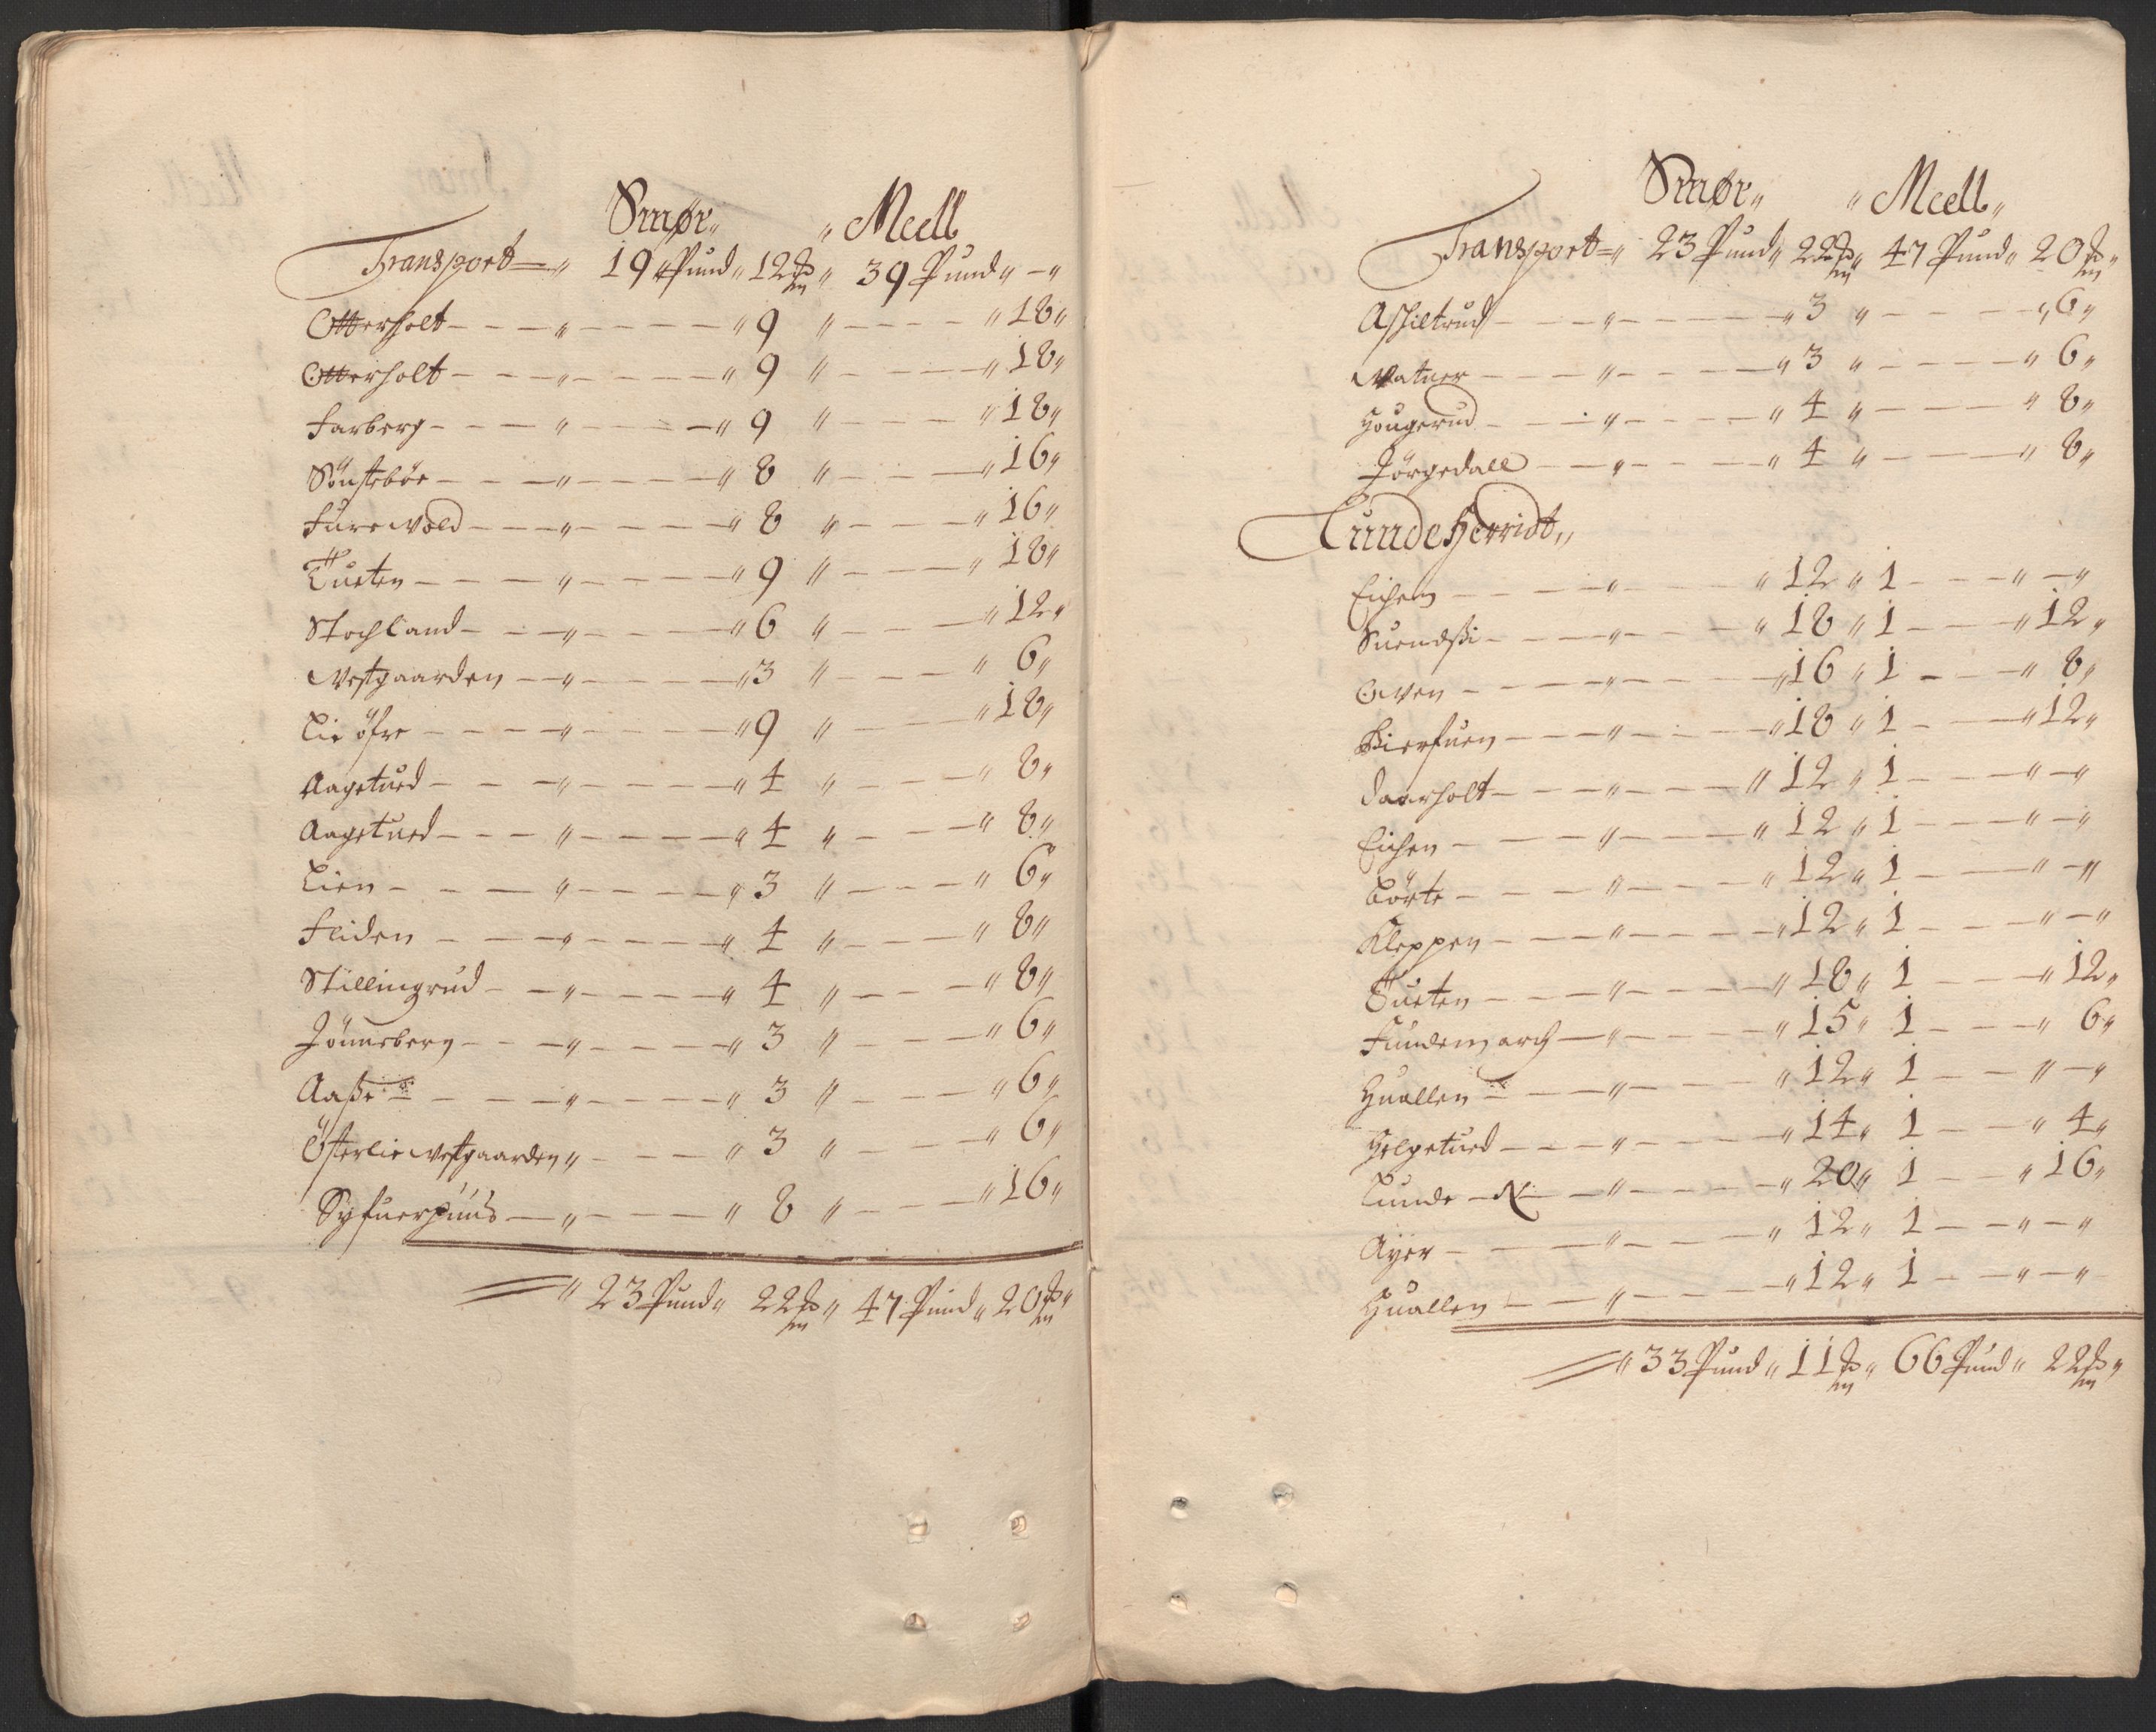 Smør„ „ Meell
Transport „ 19 Pund „ 12 „ 39 Pund „ — „
Otterholt — — — „ — — — — „ 9 „ — — — „ 18 „
Otterholt — — — „ — — — — „ 9 „ — — — „ 18 „
Farberg — — — „ — — — — „ 9 „ — — — „ 18 „
Sönsteböe — — — „ — — — — „ 8 „ — — — „ 16 „
Furewold — — — „ — — — — „ 8 „ — — — „ 16 „
Tueten — — — „ — — — — „ 9 „ — — — „ 18 „
Stochland — — — „ — — — — „ 6 „ — — — „ 12 „
Westgaarden — — „ — — — — „ 3 „ — — — „ 6 „
Lie öfre — — — „ — — — — „ 9 „ — — — „ 18 „
Aagetued — — — „ — — — — „ 4 „ — — — „ 8 „
Aagetued — — — „ — — — — „ 4 „ — — — „ 8 „
Lien — — — „ — — — — „ 3 „ — — — „ 6 „
Fliden — — — „ — — — — „ 4 „ — — — „ 8 „
Stillingrud — — „ — — — — „ 4 „ — — — „ 8 „
Jönneberg — — — „ — — — — „ 3 „ — — — „ 6 „
Aaße — — — „ — — — — „ 3 „ — — — „ 6 „
Österlie Westgaarden „ — — — „ 3 „ — — — „ 6 „
Syfuerhuus — „ — — — „ 8 „ — — — „ 16 „
„ 23 Pund „ 22 „ 47 Pund „ 20 „
Smør„ „ Meell„
Transport „ 23 Pund „ 22 „ 47 Pund „ 20 „
Aschiltrud — — — „ — — — — „ 3 „ — — — „ 6 „
Watner — — — „ — — — — „ 3 „ — — — „ 6 „
Hougerud — — — „ — — — — „ 4 „ — — — „ 8 „
Jörgedall — — „ — — — — „ 4 „ — — — „ 8 „
Lunde Herridt„
Eichen — — — „ — — — „ 12 „ 1 — — — „ — „
Suendßi — — — „ — — — „ 18 „ 1 — — — „ 12 „
Owen — — — „ — — — „ 16 „ 1 — — — „ 8 „
Kierfuen — — — „ — — — „ 18 „ 1 — — — „ 12 „
Daarholt — — — „ — — — „ 12 „ 1 — — — „ — „
Eichen — — — „ — — — „ 12 „ 1 — — — „ — „
Börte — — — „ — — — „ 12 „ 1 — — — „ — „
Kleppen — — — „ — — — „ 12 „ 1 — — — „ — „
Tueten — — — „ — — — „ 18 „ 1 — — — „ 12 „
Fundemarch — „ — — — „ 15 „ 1 — — — „ 6 „
Huallen — — „ — — — „ 12 „ 1 — — „ — „
Helgetued — — — „ — — — „ 14 „ 1 — — „ 4 „
Lunde — N: — „ — — — „ 20 „ 1 — — „ 16 „
Ayer — — — „ — — — „ 12 „ 1 — — „ — „
Huallen — — „ — — — „ 12 „ 1 — — „ — „
„ 33 Pund „ 11 „ 66 Pund „ 22 „